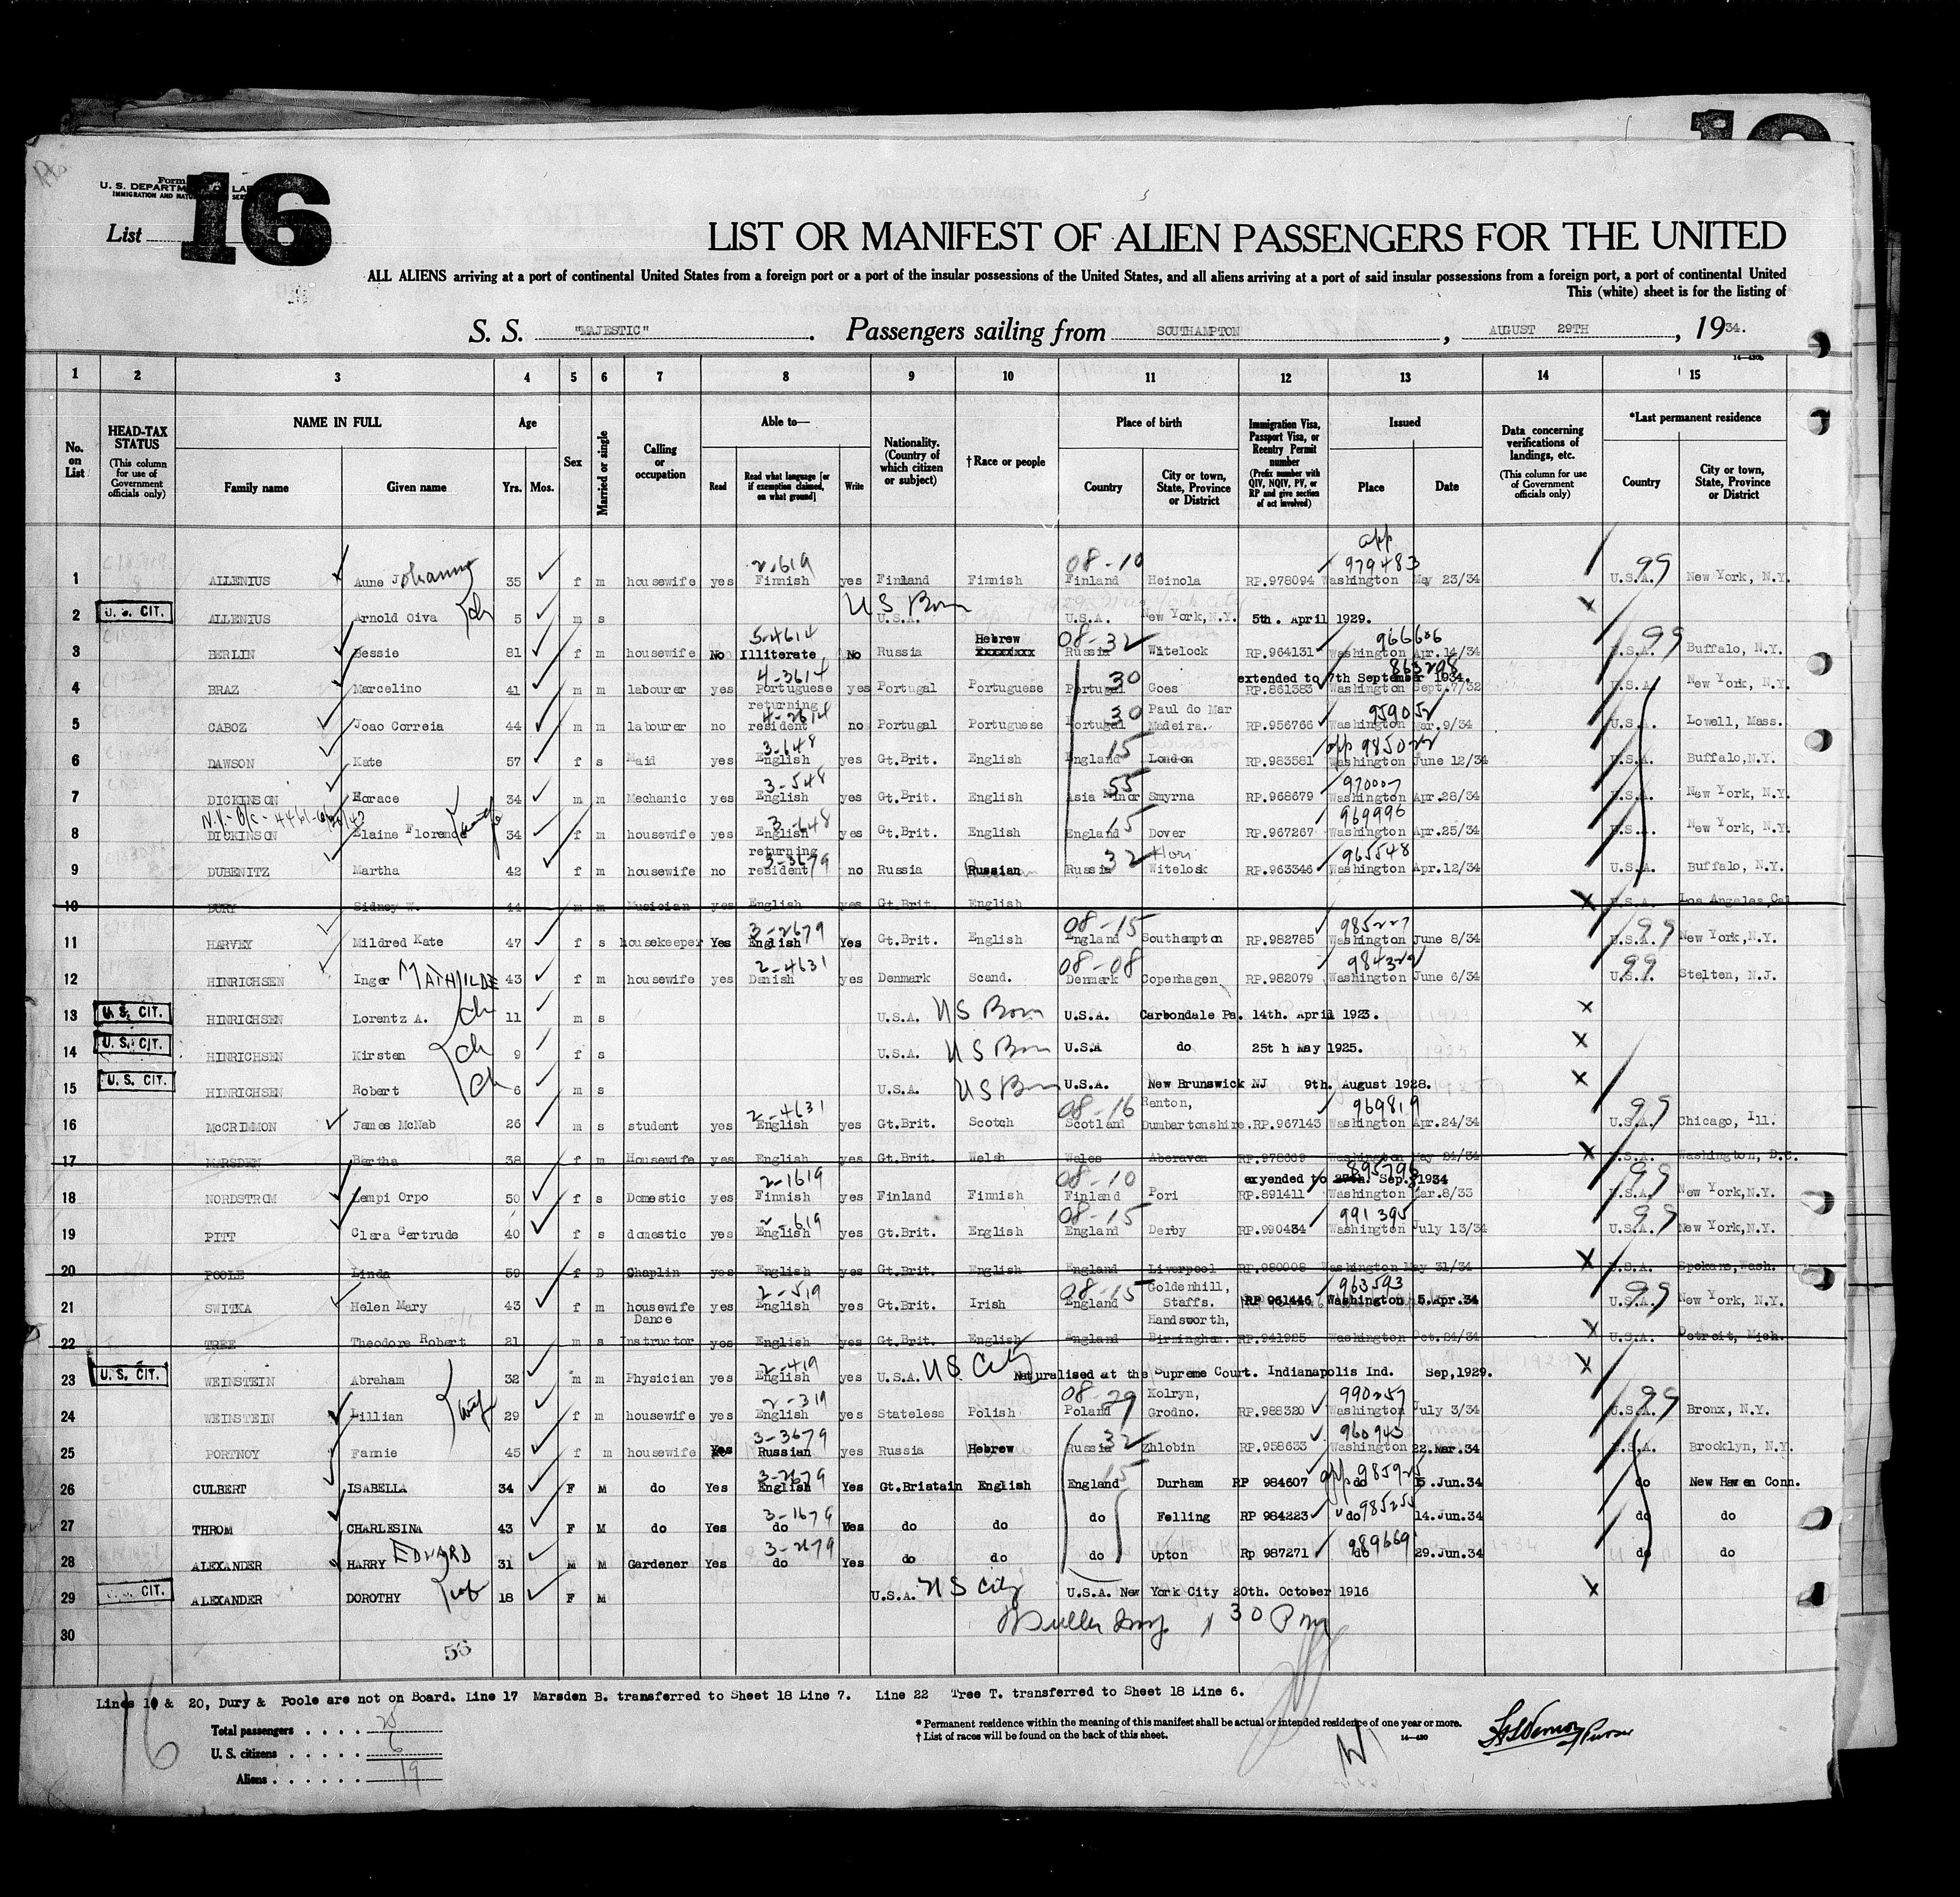 Form
U. S. DEPARTMENT LABOR
IMMIGRATION AND SERVICE
List 16
LIST OR MANIFEST OF ALIEN PASSENGERS FOR THE UNITED
ALL ALIENS arriving at a port of continental United States from a foreign port or a port of the insular possessions of the United States, and all aliens arriving at a port of said insular possessions from a foreign port, a port of continental United
This (white) sheet is for the listing of
S. S. "MAJESTIC" . Passengers sailing from SOUTHAMPTON , AUGUST 29TH , 1934.
14—430b
1 2 3 4 5 6 7 8 9 10 11 12 13 14 15
No. on List
HEAD-TAX STATUS (This column for use of Government officials only)
NAME IN FULL Family name Given name
Age Yrs. Mos.
Sex
Married or single
Calling or occupation
Able to— Read Read what language [or if exemption claimed, on what ground] Write
Nationality. (Country of which citizen or subject)
†Race or people
Place of birth Country City or town, State, Province or District
Immigration Visa, Passport Visa, or Reentry Permit number (Prefix number with QIV, NQIV, PV, or RP and give section of act involved)
Issued Place Date
Data concerning verifications of landings, etc. (This column for use of Government officials only)
*Last permanent residence Country City or town, State, Province or District
app
2-619 08-10 979483 99
1 ALLENIUS Aune Johanna 35 f m housewife yes Finnish yes Finland Finnish Finland Heinola RP.978094 Washington May 23/34 U.S.A. New York, N.Y.
2 U. S. CIT. ALLENIUS Arnold Oiva ch 5 m s US Born U.S.A. U.S.A. New York,N.Y. 5th. April 1929.
5-4614 Hebrew 08-32 966606 99
3 BERLIN Bessie 81 f m housewife No Illiterate No Russia xxxxxxxx Russia Witelock RP.964131 Washington Apr.14/34 U.S.A. Buffalo, N.Y.
4-3614 30 extended to 7th September 1934. 863298
4 BRAZ Marcelino 41 m m labourer yes Portuguese yes Portugal Portuguese Portugal Goes RP.861383 Washington Sept.7/32 U.S.A. New York, N.Y.
returning 4-2614 30 Paul do Mar 959052
5 CABOZ Joao Correia 44 m m labourer no resident no Portugal Portuguese Portugal Madeira. RP.956766 Washington Mar.9/34 U.S.A. Lowell, Mass.
3-648 15 app 985022
6 DAWSON Kate 57 f s Maid yes English yes Gt.Brit. English England London RP.983581 Washington June 12/34 U.S.A. Buffalo,N.Y.
3-548 55 970007
7 DICKINSON Horace 34 m m Mechanic yes English yes Gt.Brit. English Asia Minor Smyrna RP.968679 Washington Apr.28/34 U.S.A. New York, N.Y.
3-648 15 969996
8 DICKINSON Elaine Florence 34 f m housewife yes English yes Gt.Brit. English England Dover RP.967267 Washington Apr.25/34 U.S.A. New York, N.Y.
returning 3-3679 32 965548
9 DUBENITZ Martha 42 f m housewife no resident no Russia Russian Russia Witelosk RP.963346 Washington Apr.12/34 U.S.A. Buffalo, N.Y.
10 DURY Sidney W. 44 m m Musician yes English yes Gt.Brit. English U.S.A. Los Angeles,Cal
3-2679 08-15 985227 99
11 HARVEY Mildred Kate 47 f s housekeeper Yes English Yes Gt.Brit. English England Southampton RP.982785 Washington June 8/34 U.S.A. New York,N.Y.
2-4631 08-08 984322 99
12 HINRICHSEN Inger MATHILDE 43 f m housewife yes Danish yes Denmark Scand. Denmark Copenhagen RP.982079 Washington June 6/34 U.S.A. Stelten, N.J.
13 U. S. CIT. HINRICHSEN Lorentz A. ch 11 m s U.S.A. US Born U.S.A. Carbondale Pa. 14th. April 1923.
14 U. S. CIT. HINRICHSEN Kirsten ch 9 f s U.S.A. US Born U.S.A do 25t h May 1925.
15 U. S. CIT. HINRICHSEN Robert ch 6 m s U.S.A. US Born U.S.A. New Brunswick NJ 9th. August 1928.
2-4631 08-16 Renton, 969819 99
16 McCRIMMON James McNab 26 m s student yes English yes Gt.Brit. Scotch Scotland Dumbartonshire. RP.967143 Washington Apr.24/34 U.S.A. Chicago, Ill.
17 MARSDEN Bertha 38 f m Housewife yes English yes Gt.Brit. Welsh Wales Aberavon RP.978669 Washington May 24/34 U.S.A. Washington, D.C.
2-1619 08-10 exyended to 27th. Sep. 1934 895796 99
18 NORDSTROM Lempi Orpo 50 f s Domestic yes Finnish yes Finland Finnish Finland Pori RP.891411 Washington Mar.8/33 U.S.A. New York,N.Y.
2-619 08-15 991395 99
19 PITT Clara Gertrude 40 f s domestic yes English yes Gt.Brit. English England Derby RP.990434 Washington July 13/34 U.S.A. New York,N.Y.
20 POOLE Linda 59 f D Chaplin yes English yes Gt.Brit. English England Liverpool RP.980008 Washington May 31/34 U.S.A. Spokane,Wash.
2-519 08-15 Goldenhill, 963593 99
21 SWITKA Helen Mary 43 f m housewife yes English yes Gt.Brit. Irish England Staffs. RP 961446 Washington 5.Apr.34 U.S.A. New York, N.Y.
Dance Handsworth,
22 TREE Theodore Robert 21 m s Instructor yes English yes Gt.Brit. English England Birmingham. RP.941925 Washington Oct.24/34 U.S.A. Detroit, Mich.
2-419
23 U. S. CIT. WEINSTEIN Abraham 32 m m Physician yes English yes U.S.A. US City Naturalised at the Supreme Court. Indianapolis Ind. Sep,1929.
2-319 08-29 Kolryn, 990257 99
24 WEINSTEIN Lillian wife 29 f m housewife yes English yes Stateless Polish Poland Grodno. RP.988320 Washington July 3/34 U.S.A. Bronx, N.Y.
3-3679 32 960943
25 PORTNOY Fannie 45 f m housewife Yes Russian yes Russia Hebrew Russia Zhlobin RP.958633 Washington 22.Mar.34 U.S.A. Brooklyn, N.Y.
3-2679 15 app 985925
26 CULBERT ISABELLA 34 F M do Yes English Yes Gt.Bristain English England Durham RP 984607 do 15.Jun.34 do New Haven Conn.
3-1679 985255
27 THROM CHARLESINA 43 F M do Yes do Yes do do do Felling RP 984223 do 14.Jun.34 do do
3-2679 989669
28 ALEXANDER HARRY EDWARD 31 M M Gardener Yes do Yes do do do Upton Rp 987271 do 29.Jun.34 do do
29 U. S. CIT. ALEXANDER DOROTHY wife 18 F M U.S.A. US City U.S.A. New York City 20th. October 1916
30
1 30 Pm
56
Lines 10 & 20, Dury & Poole are not on Board. Line 17 Marsden B. transferred to Sheet 18 Line 7. Line 22 Tree T. transferred to Sheet 18 Line 6.
Total passengers . . . . 25
U. S. citizens . . . . . 6
Aliens . . . . . . 19
16
* Permanent residence within the meaning of this manifest shall be actual or intended residence of one year or more.
† List of races will be found on the back of this sheet.
14—430
Purser